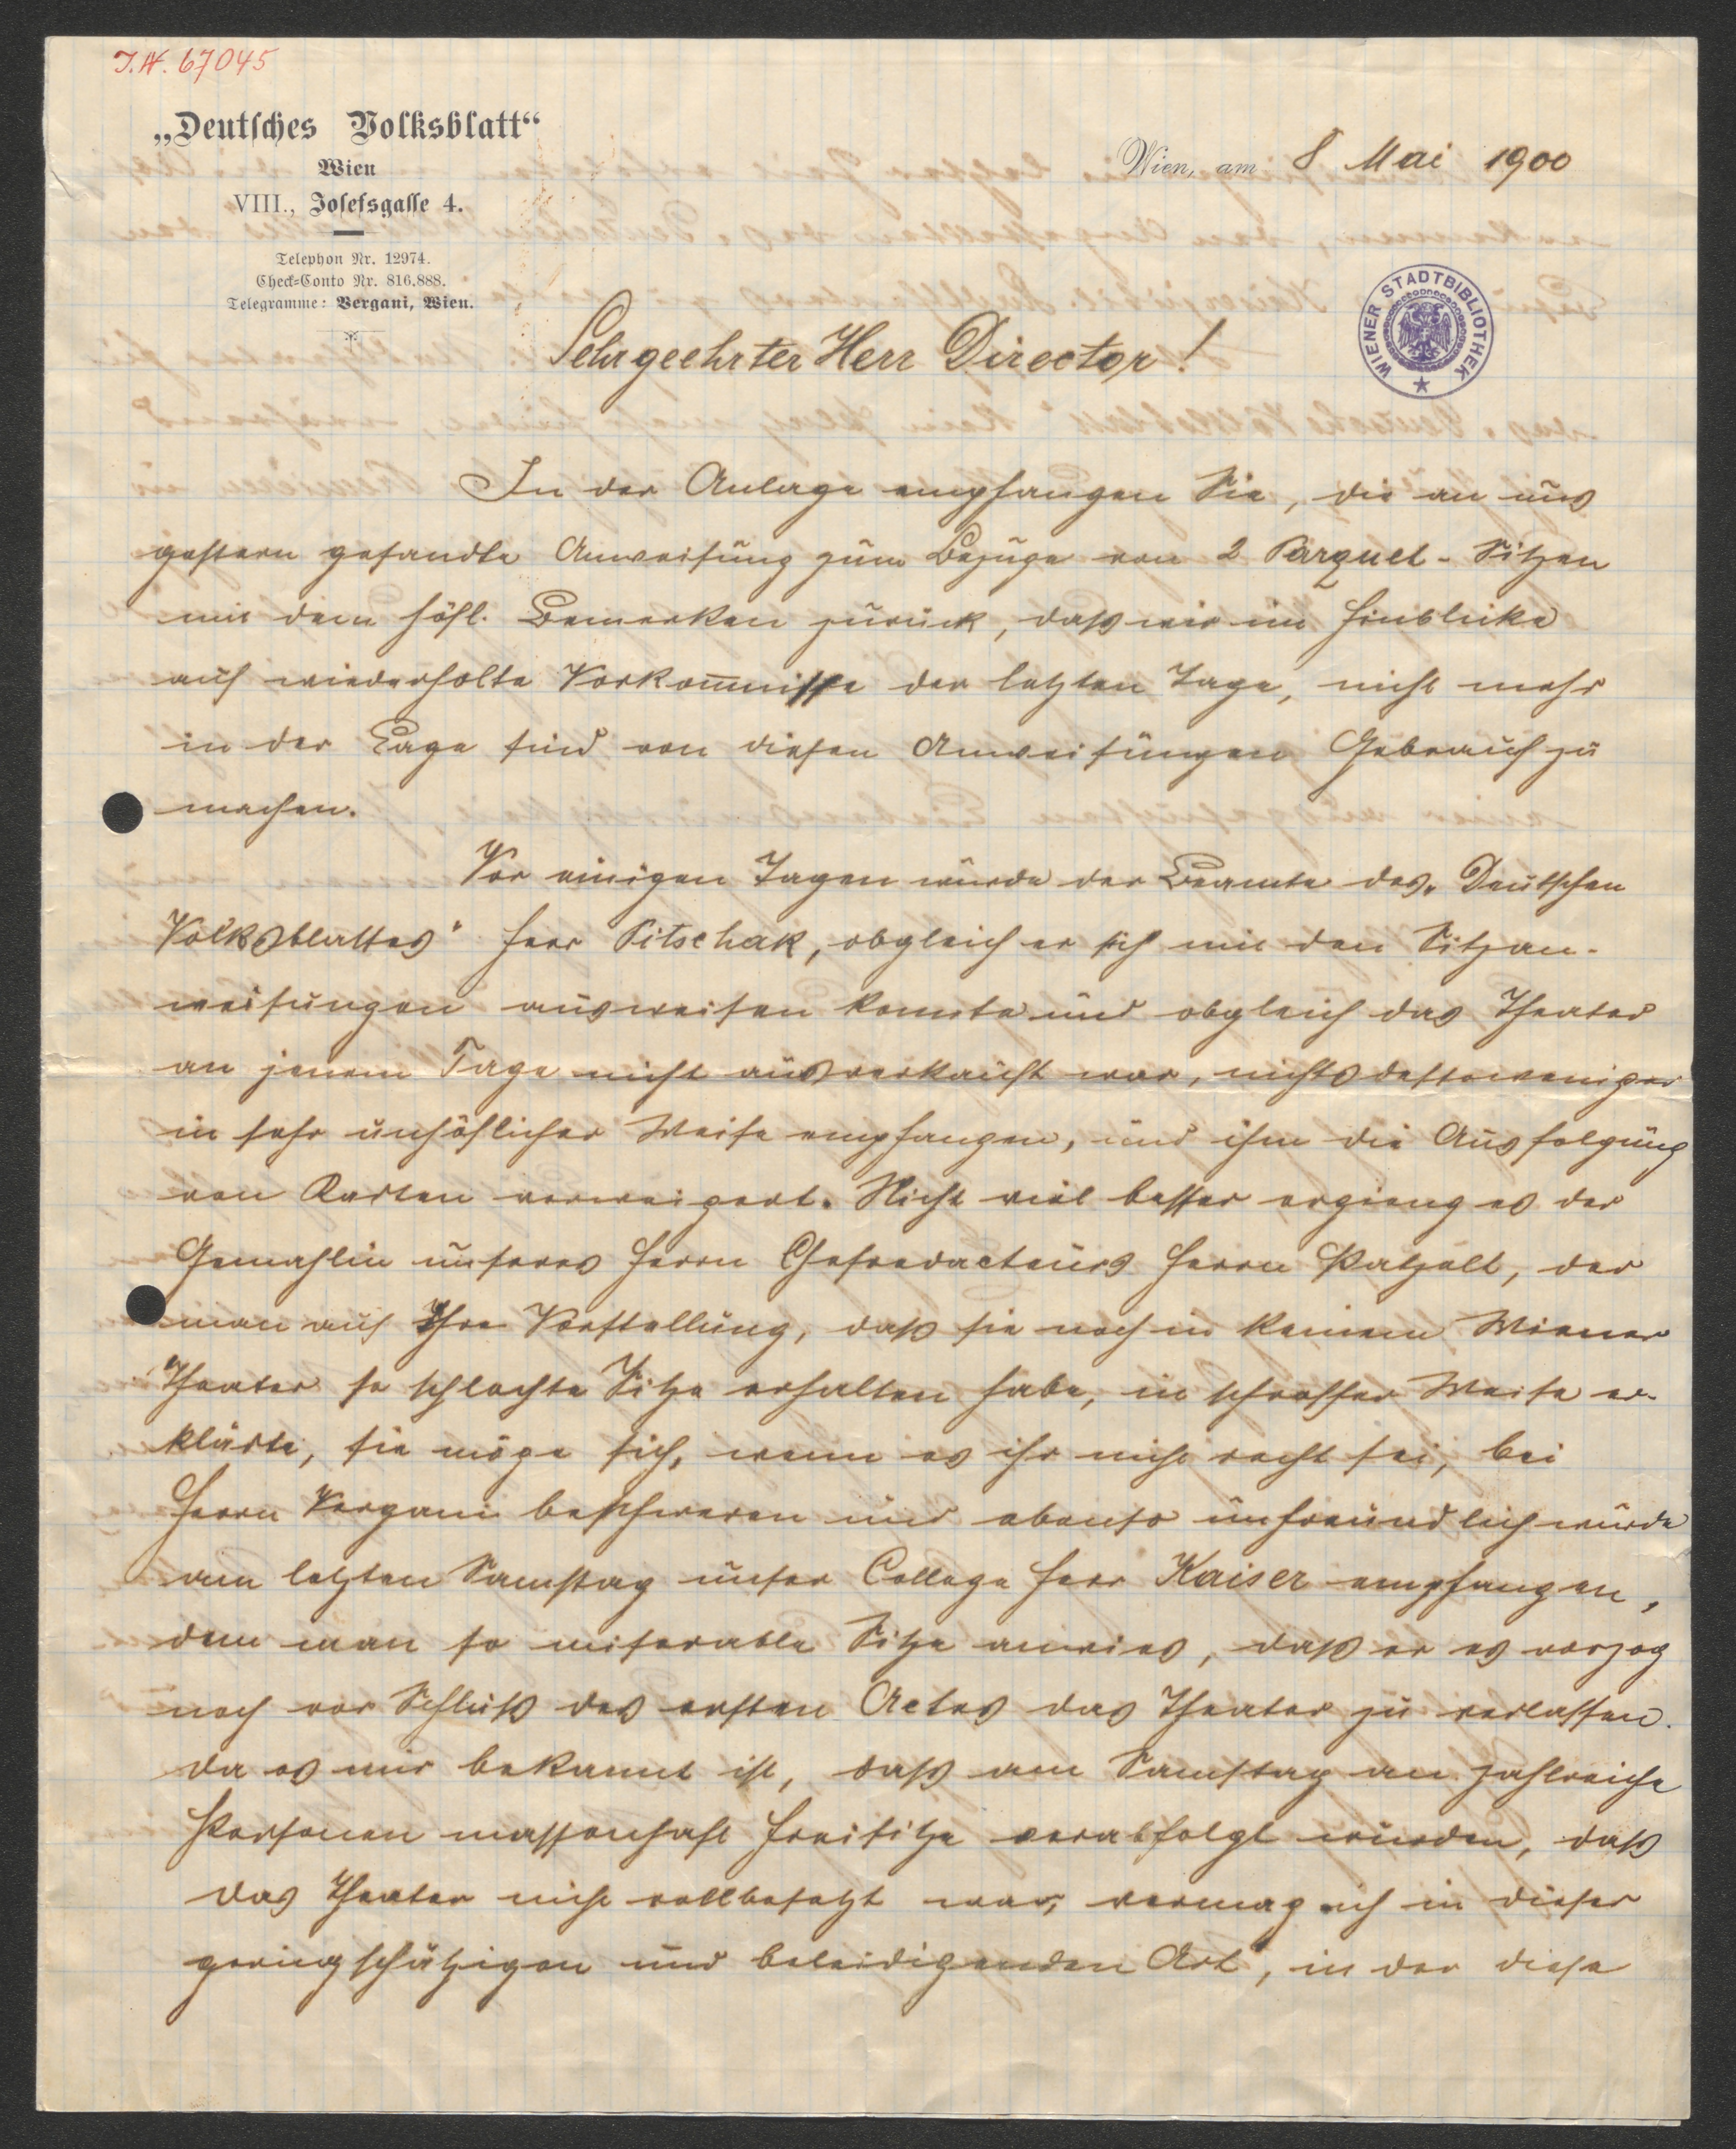 J.N. 67045
„Deutsches Volksblatt“
Wien
VIII., Josefsgasse 4.
Telephon Nr. 12974.
Check-Conto Nr. 816.888.
Telegramme: Vergani, Wien.
Wien, am 8 Mai 1900
WIENER STADTBIBLIOTHEK
Sehr geehrter Herr Director!
In der Anlage empfangen Sie, die an uns
gestern gesandte Anweisung zum Bezuge von 2 Parquet-Sitzen
mit dem höfl. Bemerken zurück, daß wir im Hinblicke
auf wiederholte Vorkom̅nisse der letzten Tage, nicht mehr
in der Lage sind von diesen Anweisungen Gebrauch zu
machen.
Vor einigen Tagen wurde der Beamte des „Deutschen
Volksblattes“ Herr Pitschak, obgleich er sich mit den Sitzan-
weisungen ausweisen konnte und obgleich das Theater
an jenem Tage nicht ausverkauft war, nichtsdestoweniger
in sehr unhöflicher Weise empfangen, und ihm die Ausfolgung
von Karten verweigert. Nicht viel besser ergieng es der
Gemahlin unseres Herrn Chefredacteurs Herrn Patzelt, der
man auf Ihre Vorstellung, daß sie noch in keinem Wiener
Theater so schlechte Sitze erhalten habe, in schroffer Weise er-
klärte, sie möge sich, wenn es ihr nicht recht sei, bei
Herrn Vergani beschweren und ebenso unfreundlich wurde
am letzten Samstag unser College Herr Kaiser empfangen,
dem man so miserable Sitze anwies, daß er es vorzog
noch vor Schluß des ersten Actes das Theater zu verlassen.
da es mir bekannt ist, daß am Samstag an zahlreiche
Personen massenhaft Freisitze verabfolgt wurden, daß
das Theater nicht vollbesetzt war, vermag ich in dieser
geringschätzigen und beleidigenden Art, in der diese